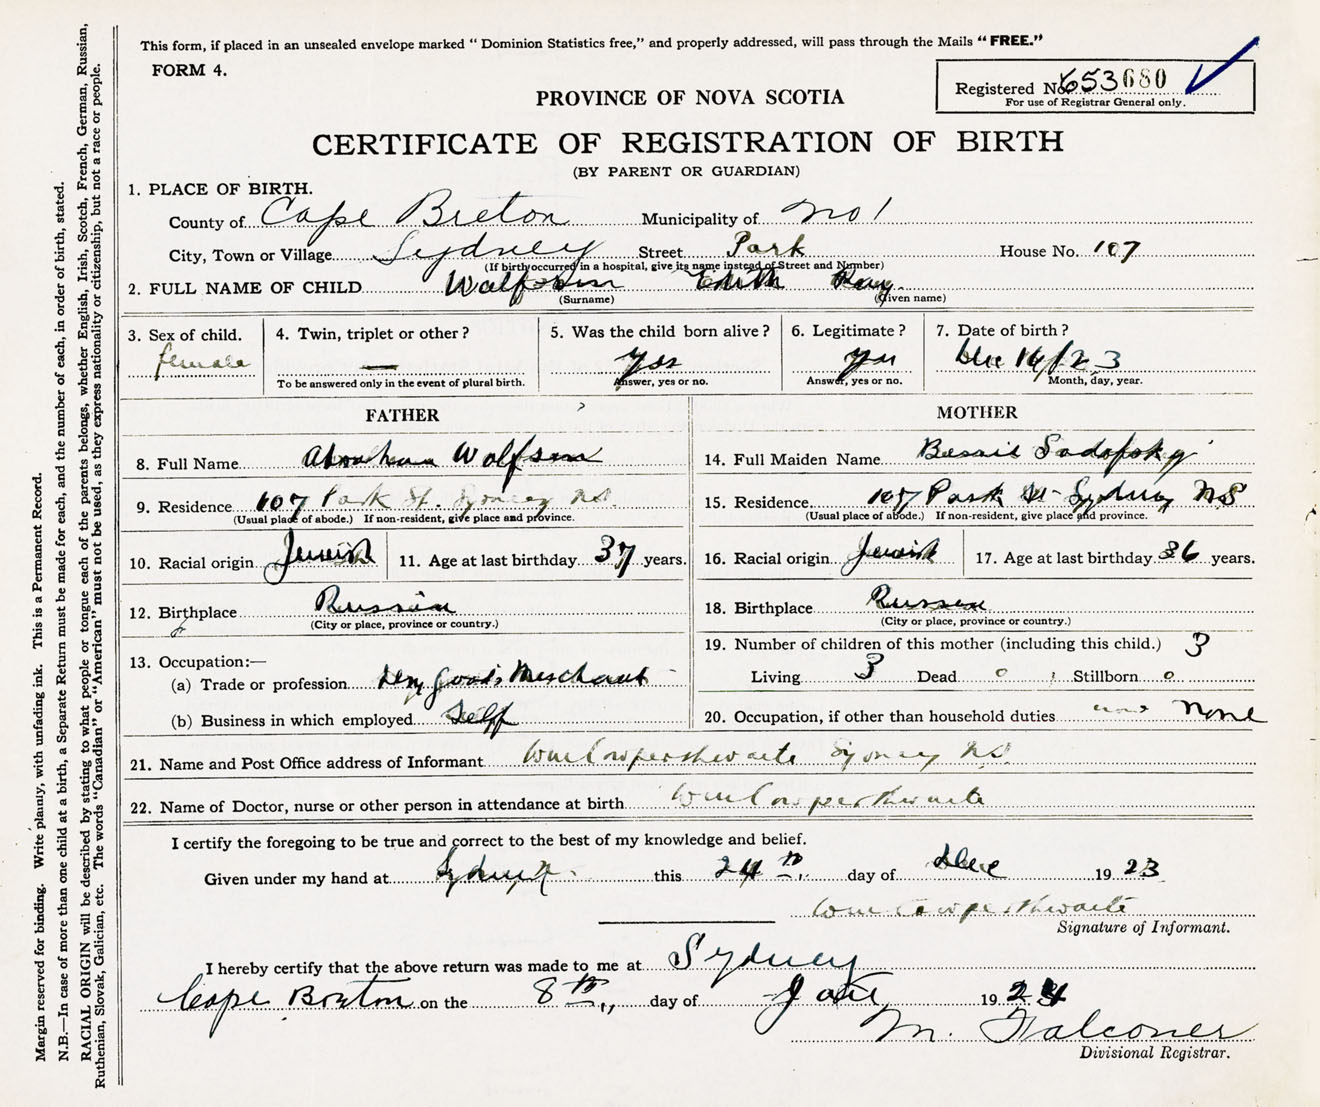 This form, if placed in an unsealed envelope marked “ Dominion Statistics free,” and properly addressed, will pass through the Mails “ FREE.”
FORM 4.
Registered No. 653680
For use of Registrar General only.
PROVINCE OF NOVA SCOTIA
CERTIFICATE OF REGISTRATION OF BIRTH
(BY PARENT OR GUARDIAN)
1. PLACE OF BIRTH.
County of Cape Breton Municipality of No 1
City, Town or Village Sydney Street Park House No. 107
(If birth occurred in a hospital, give its name instead of Street and Number)
2. FULL NAME OF CHILD Wolfson Edith
(Surname) (Given name)
3. Sex of child. 4. Twin, triplet or other? 5. Was the child born alive? 6. Legitimate? 7. Date of birth?
female — yes yes Dec 16/23
To be answered only in the event of plural birth. Answer, yes or no. Answer, yes or no. Month, day, year.
FATHER
8. Full Name Abraham Wolfson
9. Residence 107 Park St. Sydney N.S.
(Usual place of abode.) If non-resident, give place and province.
10. Racial origin Jewish 11. Age at last birthday 37 years.
12. Birthplace Russia
(City or place, province or country.)
13. Occupation:—
(a) Trade or profession Dry Goods Merchant
(b) Business in which employed Self
MOTHER
14. Full Maiden Name Sadofsky
15. Residence 107 Park St Sydney N.S
(Usual place of abode.) If non-resident, give place and province.
16. Racial origin Jewish 17. Age at last birthday 36 years.
18. Birthplace Russia
(City or place, province or country.)
19. Number of children of this mother (including this child.) 3
Living 3 Dead 0 Stillborn 0
20. Occupation, if other than household duties none None
21. Name and Post Office address of Informant Wm Cowperthwaite Sydney N.S.
22. Name of Doctor, nurse or other person in attendance at birth Wm Cowperthwaite
I certify the foregoing to be true and correct to the best of my knowledge and belief.
Given under my hand at Sydney this 24th day of Dec 1923
Wm Cowperthwaite
Signature of Informant.
I hereby certify that the above return was made to me at Sydney
Cape Breton on the 8th day of Jan 1924
M. Falconer
Divisional Registrar.
Margin reserved for binding. Write plainly, with unfading ink. This is a Permanent Record.
N.B.—In case of more than one child at a birth, a Separate Return must be made for each, and the number of each, in order of birth, stated.
RACIAL ORIGIN will be described by stating to what people or tongue each of the parents belongs, whether English, Irish, Scotch, French, German, Russian,
Ruthenian, Slovak, Galician, etc. The words “Canadian” or “American” must not be used, as they express nationality or citizenship, but not a race or people.